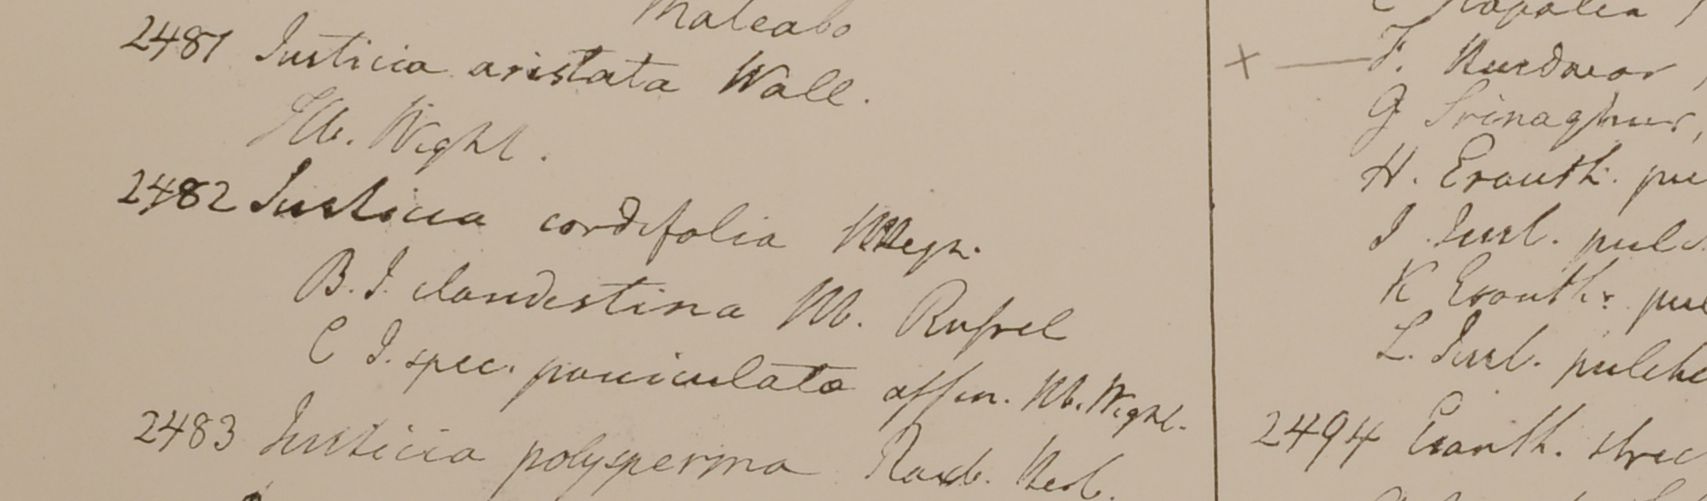 Malcabo
2481 Justicia aristata Wall.
Hb. Wight.
2482 Justicia cordifolia
B. J. clandestina Hb. Russel
C J. spec. paniculata affin. Hb. Wight.
2483 Justicia polysperma Roxb. Herb.
C
F.
G Srinaghur,
H. Eranth. pu
I Just. pulc
K Eranth. pu
L. Just. pulche
2494 Eranth. stric